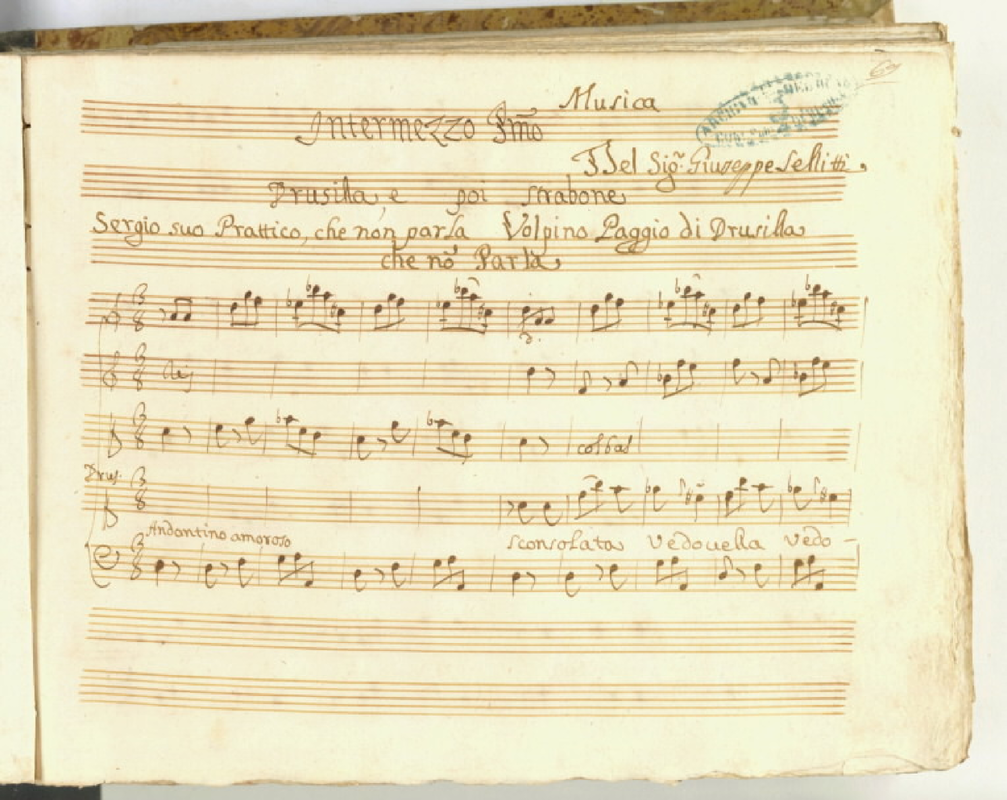 Musica
Intermezzo Pmo
Del Sigr. Giuseppe Sellitti
Drusilla, e poi Strabone
Sergio suo Prattico, che non parla Volpino Paggio di Drusilla
che nō Parla
colbas
Drus.
Andantino amoroso
sconsolata vedovella vedo-